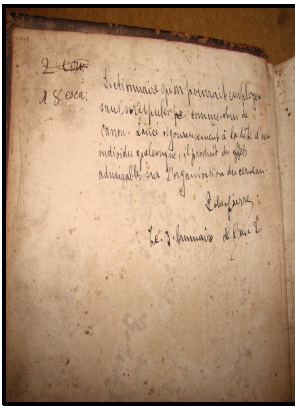 2
18 esca:
Dictionnaire qu'on pourrait employer
sans scrupule comme
canon. Lancé rigoureusement à la tête d'un
individu quelconque, il produit des effets
admirables sur l'organisation du cerveau.
Robespierre
Le 7. brumaire de l'an 2.